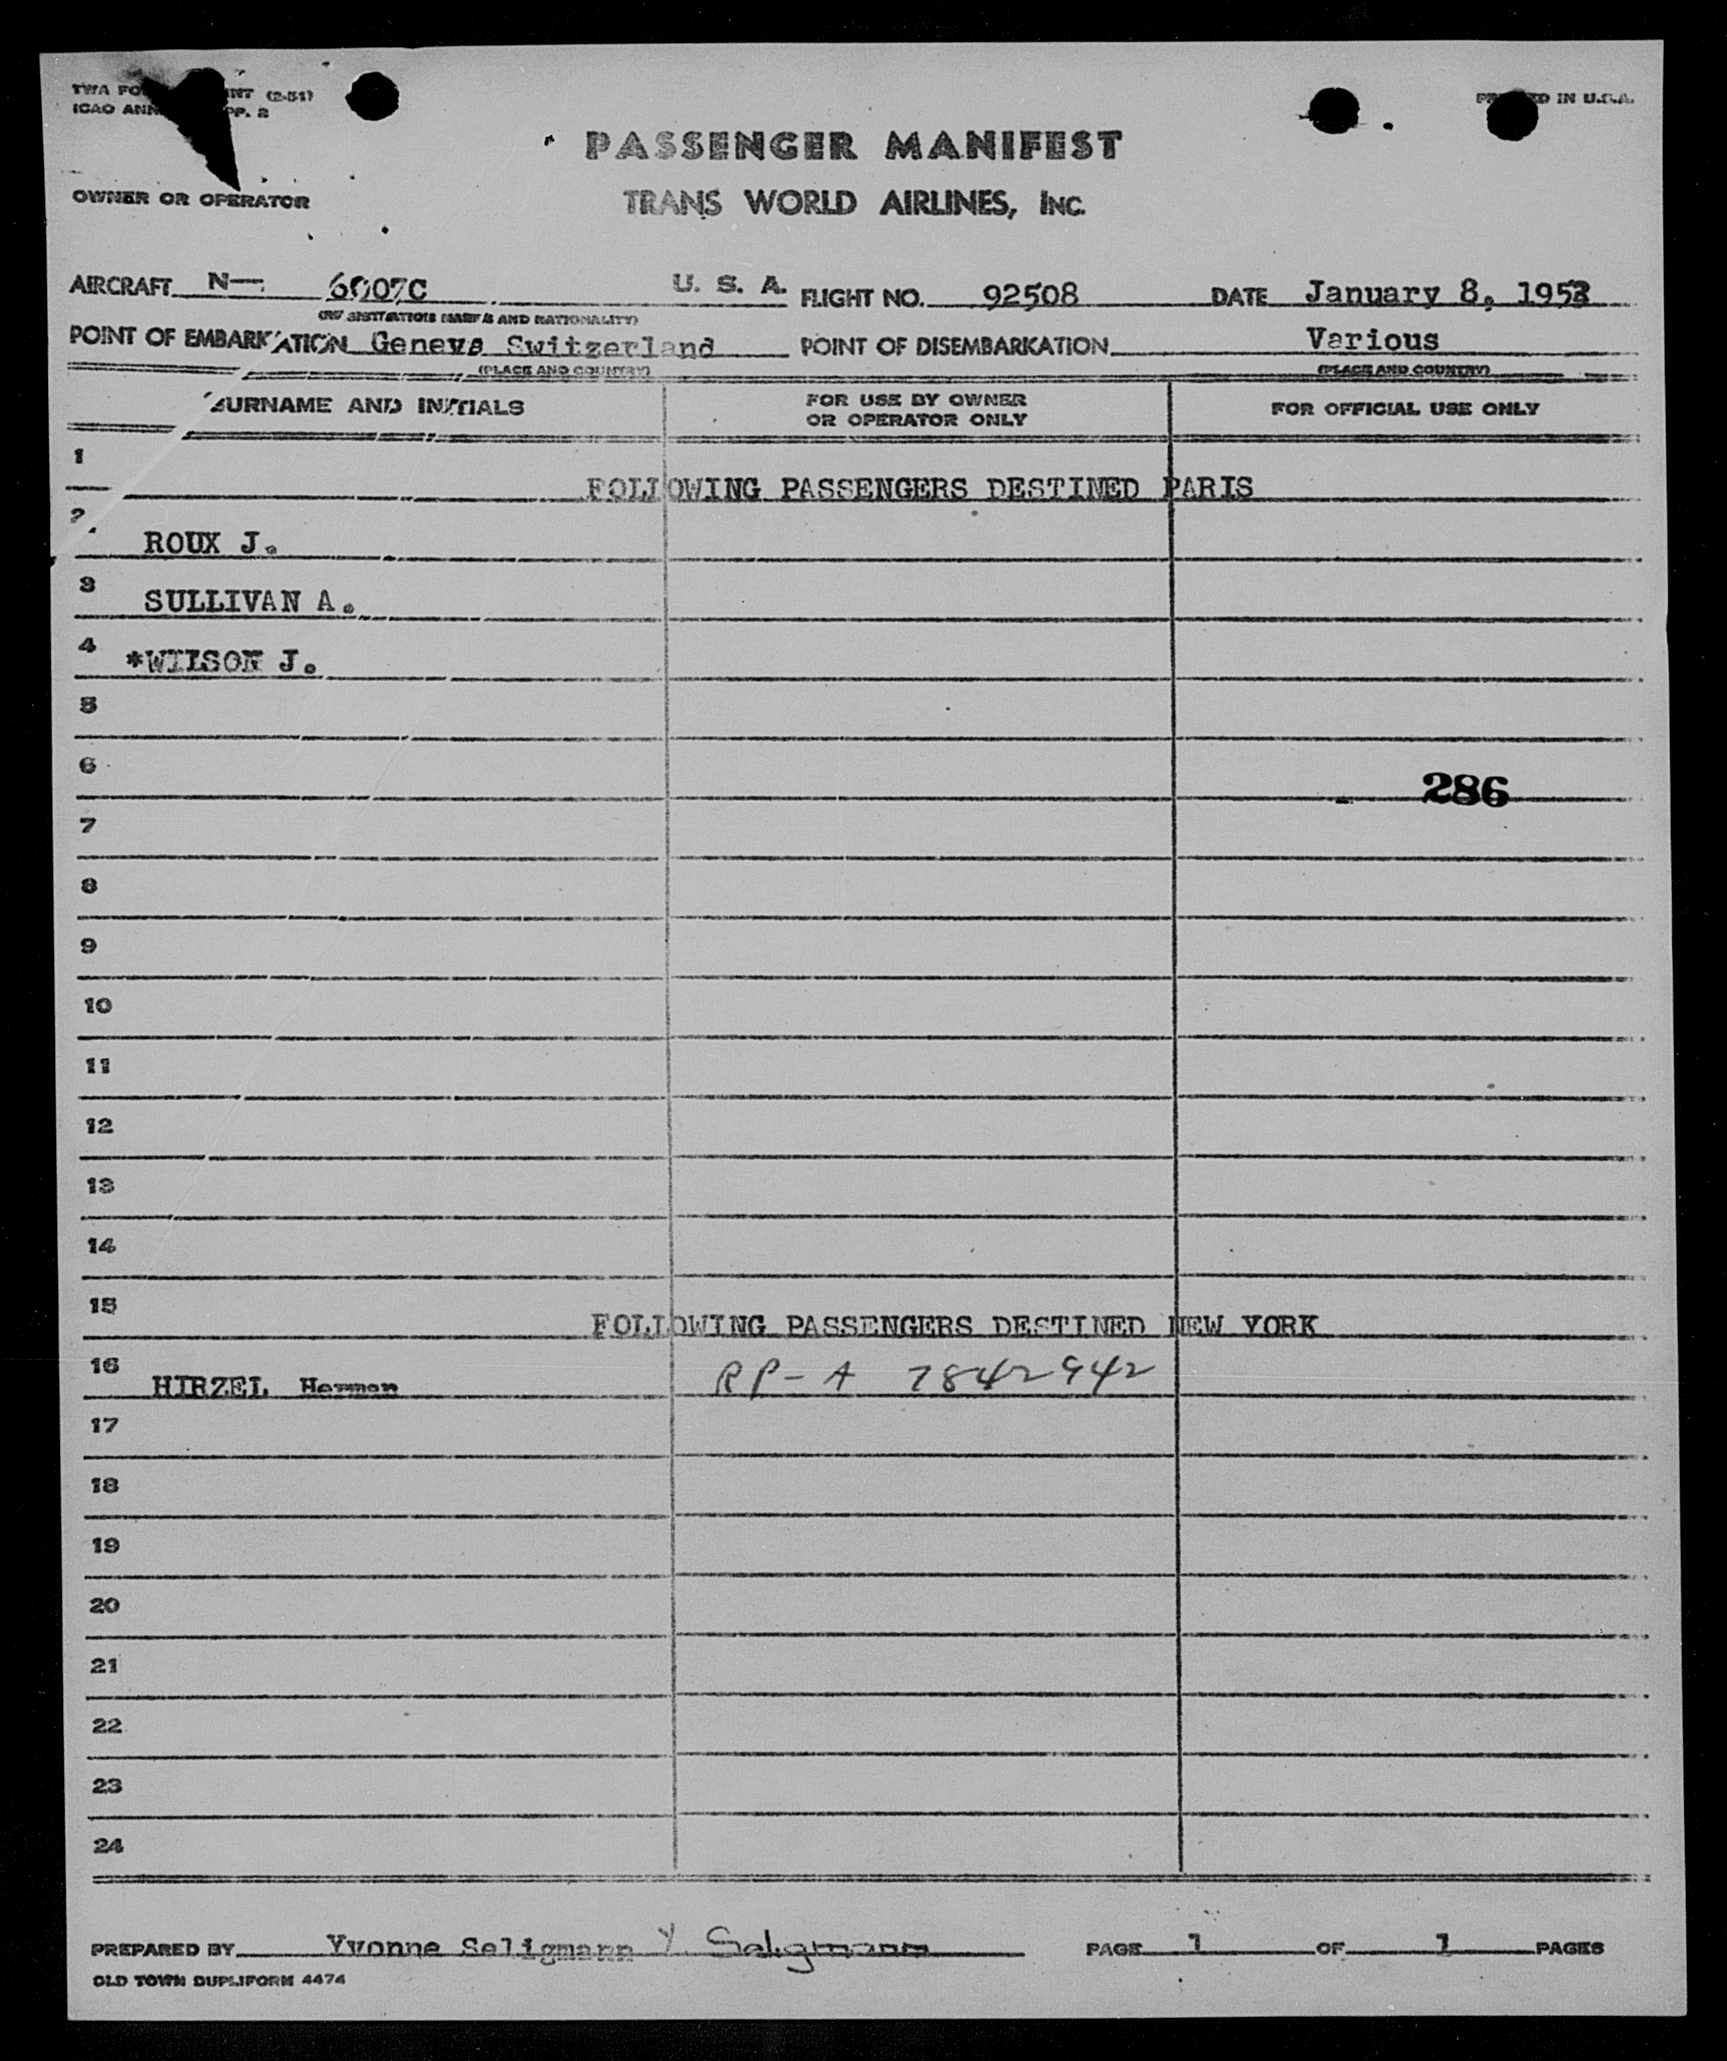 TWA FO NT (2-51)
ICAO ANN PP. 2
PR ED IN U.S.A.
PASSENGER MANIFEST
OWNER OR OPERATOR TRANS WORLD AIRLINES, INC.
AIRCRAFT N— 6007C U. S. A. FLIGHT NO. 92508 DATE January 8, 1953
(REGISTRATION MARKS AND NATIONALITY)
POINT OF EMBARKATION Geneva Switzerland POINT OF DISEMBARKATION Various
(PLACE AND COUNTRY) (PLACE AND COUNTRY)
SURNAME AND INITIALS FOR USE BY OWNER OR OPERATOR ONLY FOR OFFICIAL USE ONLY
1 FOLLOWING PASSENGERS DESTINED PARIS
2 ROUX J.
3 SULLIVAN A.
4 *WILSON J.
5
6 286
7
8
9
10
11
12
13
14
15 FOLLOWING PASSENGERS DESTINED NEW YORK
16 HIRZEL Herman RP-A 7842942
17
18
19
20
21
22
23
24
PREPARED BY Yvonne Seligmann Y. Seligmann PAGE 1 OF 1 PAGES
OLD TOWN DUPLIFORM 4474